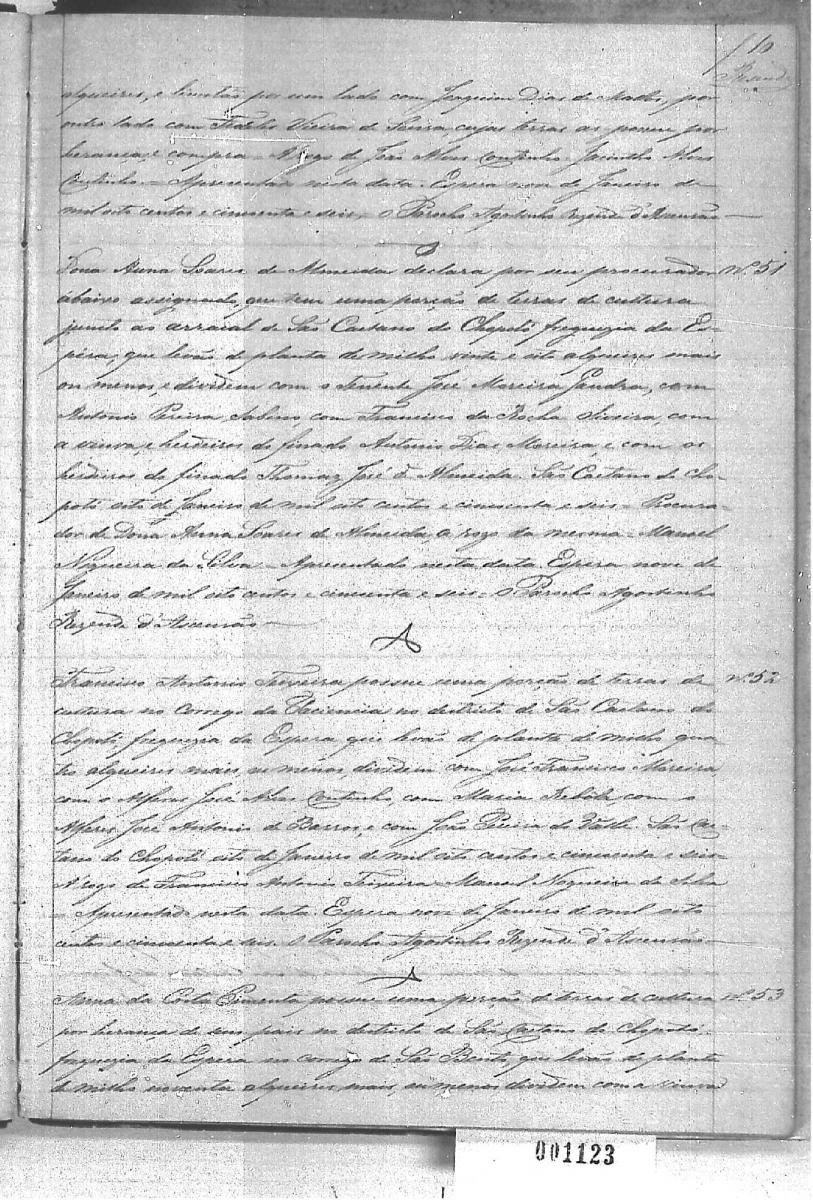 f 10
Rezende
alqueires, e limitão por um lado com Joaquim Dias de Mattos, por
outro lado com Fidelis Vieira de Souza, cujas terras as possue por
herança e compra. A rogo de João Alves Coutinho. Jacintho Alves
Coutinho. Apresentada nesta data. Espera nove de Janeiro de
mil oito centos e cincoenta e seis. O Parocho Agostinho Rezende d'Ascensão
Dona Anna Soares de Almeida declara por seu procurador Nº 51
abaixo assignado, que tem uma porção de terras de cultura
junto ao arraial de São Caetano do Chopotó freguezia da Es-
pera, que levão de planta de milho vinte e oito alqueires mais
ou menos, e dividem com o Tenente José Moreira Gandra, com
Antonio Pereira Sabino, com Francisco da Rocha, com
a viuva, e herdeiros do finado Antonio Dias Moreira, e com os
herdeiros do finado Thomaz José d'Almeida. São Caetano do Cho-
potó oito de Janeiro de mil oito centos e cincoenta e seis - Procura-
dor de Dona Anna Soares de Almeida, a rogo da mesma - Manoel
Nogueira da Silva - Apresentado nesta data. Espera nove de
Janeiro de mil oito centos e cincoenta e seis - O Parocho Agostinho
Rezende d'Ascensão
Francisco Antonio Teixeira possue uma porção de terras de Nº 52
cultura no Corrego da Paciencia no districto de São Caetano do
Chopotó, freguezia da Espera que levão de planta de milho qua-
tro alqueires mais, ou menos, dividem com José Francisco Moreira
com o Alferes José Alves Coutinho, com Maria com o
Alferes José Antonio de Barros, e com João Pereira do Valle. São Cae-
tano do Chopotó oito de Janeiro de mil oito centos e cincoenta e seis
A rogo de Francisco Antonio Teixeira - Manoel Nogueira da Silva
- Apresentado nesta data. Espera nove de Janeiro de mil oito
centos e cincoenta e seis. O Parocho Agostinho Rezende d'Ascensão
Anna da Costa Pimenta possue uma porção de terras de cultura Nº 53
por herança de seus pais no districto de São Caetano do Chopotó
freguezia da Espera no corrego de São Bento, que levão de planta
de milho noventa alqueires mais, ou menos, dividem com a viuva
001123